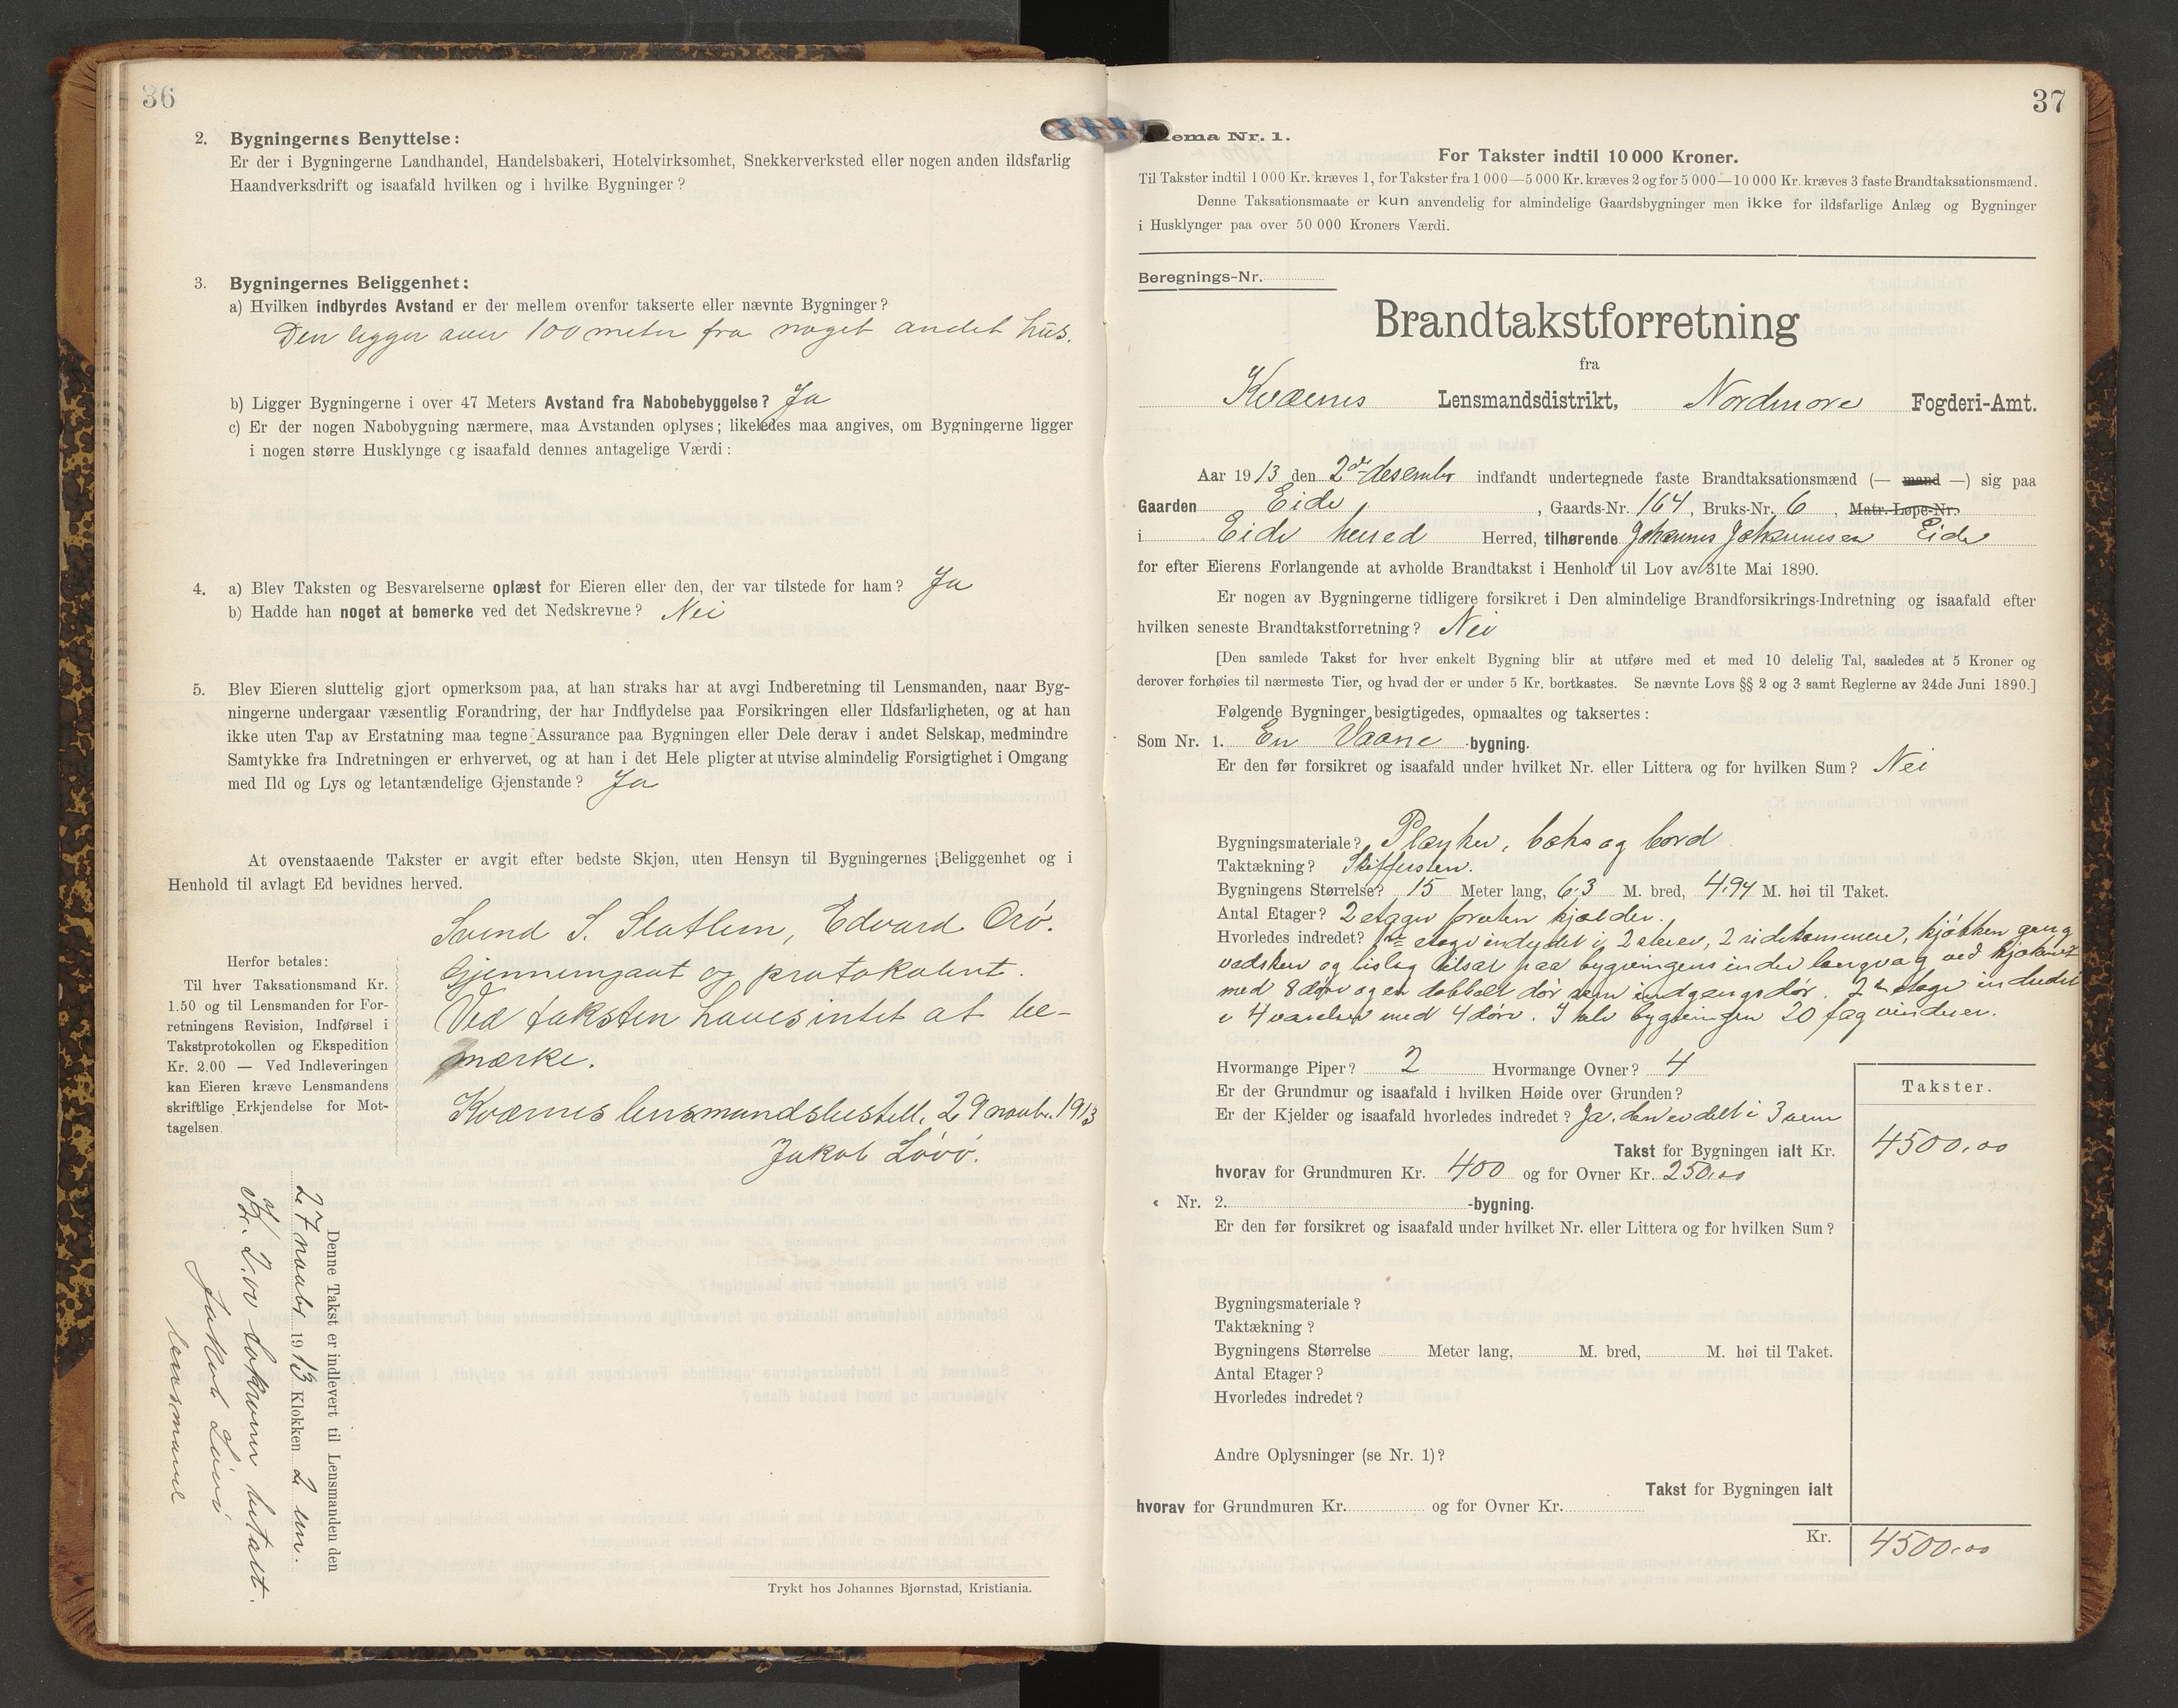 36
2. Bygningernes Benyttelse:
Er der i Bygningerne Landhandel, Handelsbakeri, Hotelvirksomhet, Snekkerverksted eller nogen anden ildsfarlig
Haandverksdrift og isaafald hvilken og i hvilke Bygninger?
3. Bygningernes Beliggenhet:
a) Hvilken indbyrdes Avstand er der mellem ovenfor takserte eller nævnte Bygninger?
Den ligger over 100 meter fra noget andet hus.
b) Ligger Bygningerne i over 47 Meters Avstand fra Nabobebyggelse? Ja
c) Er der nogen Nabobygning nærmere, maa Avstanden oplyses; likeledes maa angives, om Bygningerne ligger
i nogen større Husklynge og isaafald dennes antagelige Værdi:
4. a) Blev Taksten og Besvarelserne oplæst for Eieren eller den, der var tilstede for ham? Ja
b) Hadde han noget at bemerke ved det Nedskrevne? Nei
5. Blev Eieren sluttelig gjort opmerksom paa, at han straks har at avgi Indberetning til Lensmanden, naar Byg-
ningerne undergaar væsentlig Forandring, der har Indflydelse paa Forsikringen eller Ildsfarligheten, og at han
ikke uten Tap av Erstatning maa tegne Assurance paa Bygningen eller Dele derav i andet Selskap, medmindre
Samtykke fra Indretningen er erhvervet, og at han i det Hele pligter at utvise almindelig Forsigtighet i Omgang
med Ild og Lys og letantændelige Gjenstande? Ja
At ovenstaaende Takster er avgit efter bedste Skjøn, uten Hensyn til Bygningernes Beliggenhet og i
Henhold til avlagt Ed bevidnes herved.
Svend S. Slatlem, Edvard Orø.
Gjennemgaat og protokolert.
Ved taksten haves intet at be-
mærke.
Kværnes lensmandsbestill, 29 novbr. 1913
Jakob Løvø.
Herfor betales:
Til hver Taksationsmand Kr.
1.50 og til Lensmanden for For-
retningens Revision, Indførsel i
Takstprotokollen og Ekspedition
Kr. 2.00 — Ved Indleveringen
kan Eieren kræve Lensmandens
skriftlige Erkjendelse for Mot-
tagelsen.
Denne Takst er indlevert til Lensmanden den
27 novbr 1913 Klokken 2 em.
Kr. 2.00 tokroner betalt.
Jakob Løvø
lensmand
Trykt hos Johannes Bjørnstad, Kristiania.
37
ema Nr. 1.
For Takster indtil 10 000 Kroner.
Til Takster indtil 1 000 Kr. kræves 1, for Takster fra 1 000—5 000 Kr. kræves 2 og for 5 000—10 000 Kr. kræves 3 faste Brandtaksationsmænd.
Denne Taksationsmaate er kun anvendelig for almindelige Gaardsbygninger men ikke for ildsfarlige Anlæg og Bygninger
i Husklynger paa over 50 000 Kroners Værdi.
Beregnings-Nr.
Brandtakstforretning
fra
Kværnes Lensmandsdistrikt, Nordmøre Fogderi-Amt.
Aar 1913 den 2de desember indfandt undertegnede faste Brandtaksationsmænd (— mand —) sig paa
Gaarden Eide, Gaards-Nr. 164, Bruks-Nr. 6, Matr. Løpe-Nr.
i Eide herred Herred, tilhørende Johannes Johannesen Eide
for efter Eierens Forlangende at avholde Brandtakst i Henhold til Lov av 31te Mai 1890.
Er nogen av Bygningerne tidligere forsikret i Den almindelige Brandforsikrings-Indretning og isaafald efter
hvilken seneste Brandtakstforretning? Nei
[Den samlede Takst for hver enkelt Bygning blir at utføre med et med 10 delelig Tal, saaledes at 5 Kroner og
derover forhøies til nærmeste Tier, og hvad der er under 5 Kr. bortkastes. Se nævnte Lovs §§ 2 og 3 samt Reglerne av 24de Juni 1890.]
Følgende Bygninger besigtigedes, opmaaltes og taksertes:
Som Nr. 1. En Vaane -bygning.
Er den før forsikret og isaafald under hvilket Nr. eller Littera og for hvilken Sum? Nei
Bygningsmateriale? Planker, boks og bord
Taktækning? Skiffersten.
Bygningens Størrelse? 15 Meter lang, 6.3 M. bred, 4.94 M. høi til Taket.
Antal Etager? 2 etager foruten kjælder.
Hvorledes indredet? 1ste etage indredet i 2 stuer, 2 sidekammere, kjøkken gang
vadsken og bislag tilsat paa bygningens indre langvæg ved kjøkenet
med 8 døre og en dobbelt dør som indgangsdør. 2den etage indredet
i 4 værelser med 4 døre. I hele bygningen 20 fag vinduer.
Hvormange Piper? 2 Hvormange Ovner? 4
Er der Grundmur og isaafald i hvilken Høide over Grunden?
Er der Kjelder og isaafald hvorledes indredet? Ja, den er delt i 3 rum
Takster.
Takst for Bygningen ialt Kr. 4500.00
hvorav for Grundmuren Kr. 400 og for Ovner Kr. 250.00
« Nr. 2. -bygning.
Er den før forsikret og isaafald under hvilket Nr. eller Littera og for hvilken Sum?
Bygningsmateriale?
Taktækning?
Bygningens Størrelse Meter lang, M. bred, M. høi til Taket.
Antal Etager?
Hvorledes indredet?
Andre Oplysninger (se Nr. 1)?
Takst for Bygningen ialt
hvorav for Grundmuren Kr. og for Ovner Kr.
Kr. 4500.00